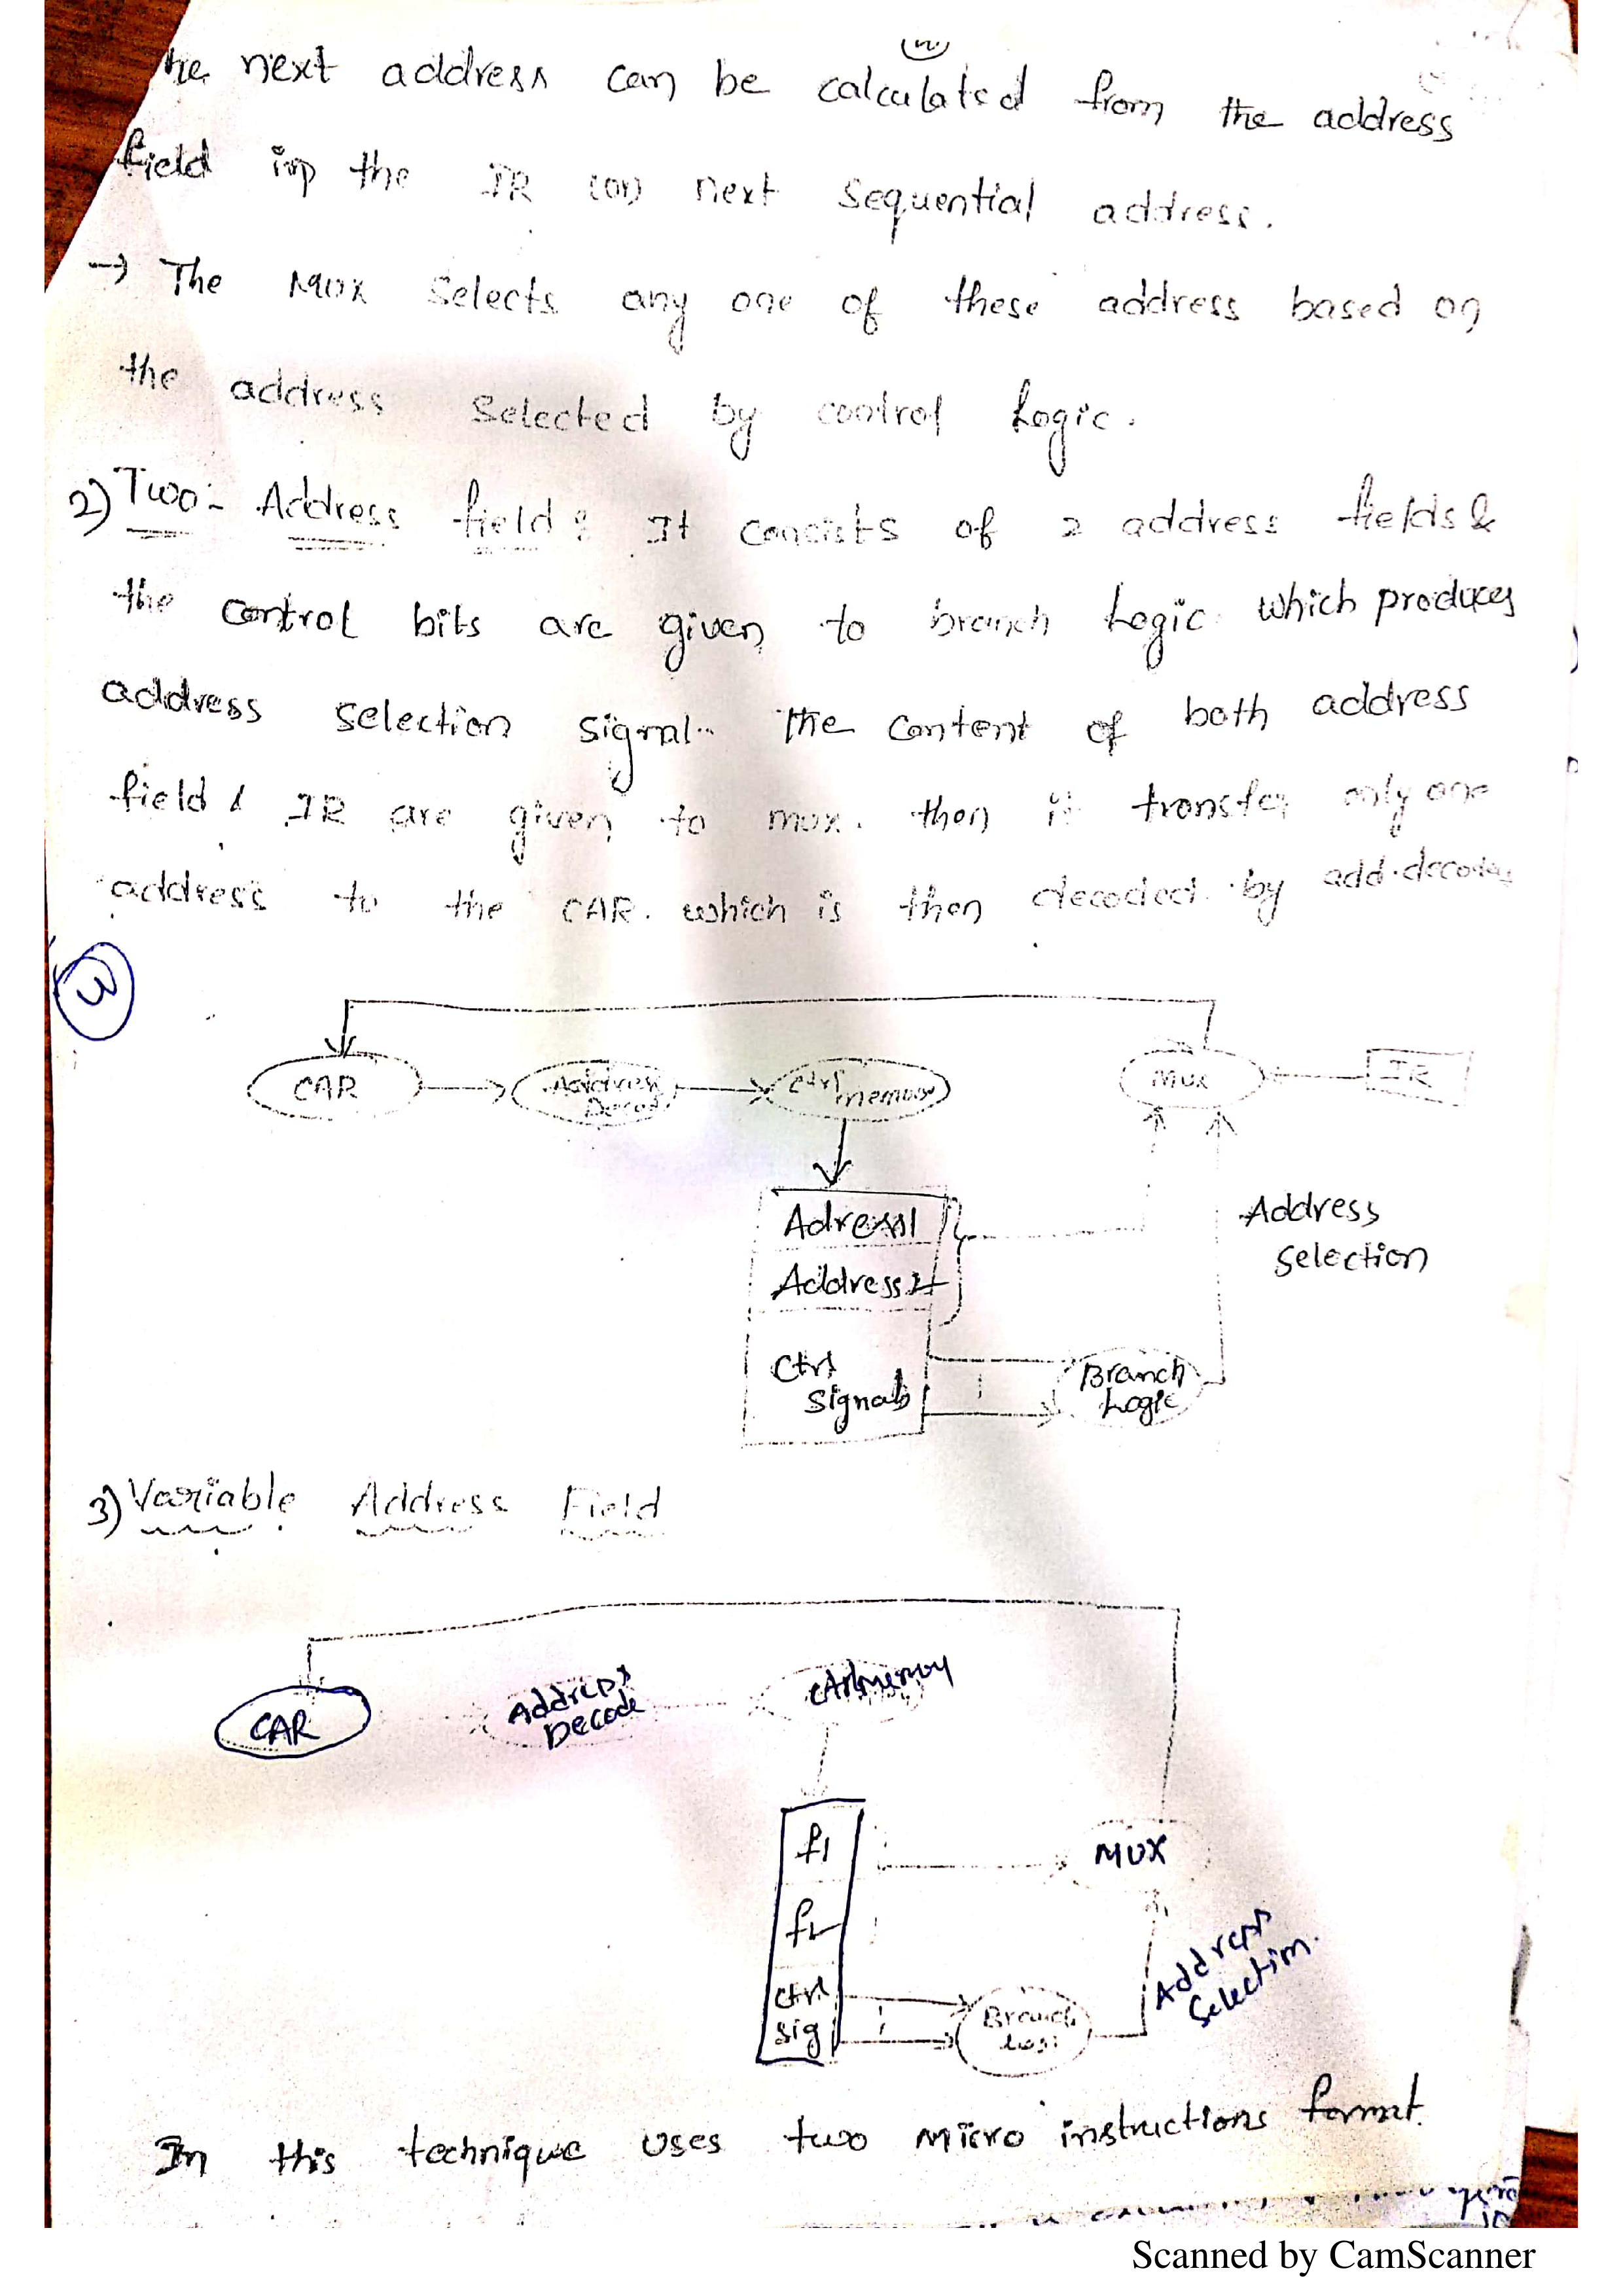 the next address can be calculated from the address
field inp the IR (or) next sequential address.
→ The Mux Selects any one of these address based on
the address Selected by control Logic.
2) Two- Address field : It concists of 2 address fields &
the control bits are given to branch Logic which produces
address selection signal.. The content of both address
field & IR are given to mux. then it transfer only one
address to the CAR. which is then decoded by add.decoder
3
CAR
Address
Decod
Ctrl
memory
Mux
IR
Adress1
Address2
Ctrl
Signals
Branch
Logic
Address
Selection
3) Variable Address Field
CAR
Address
Decode
Ctrlmemoy
f1
f2
Ctrl
Sig
MUX
Branch
Logi
Address
Selection.
In this technique uses two Micro instructions format.
Scanned by CamScanner